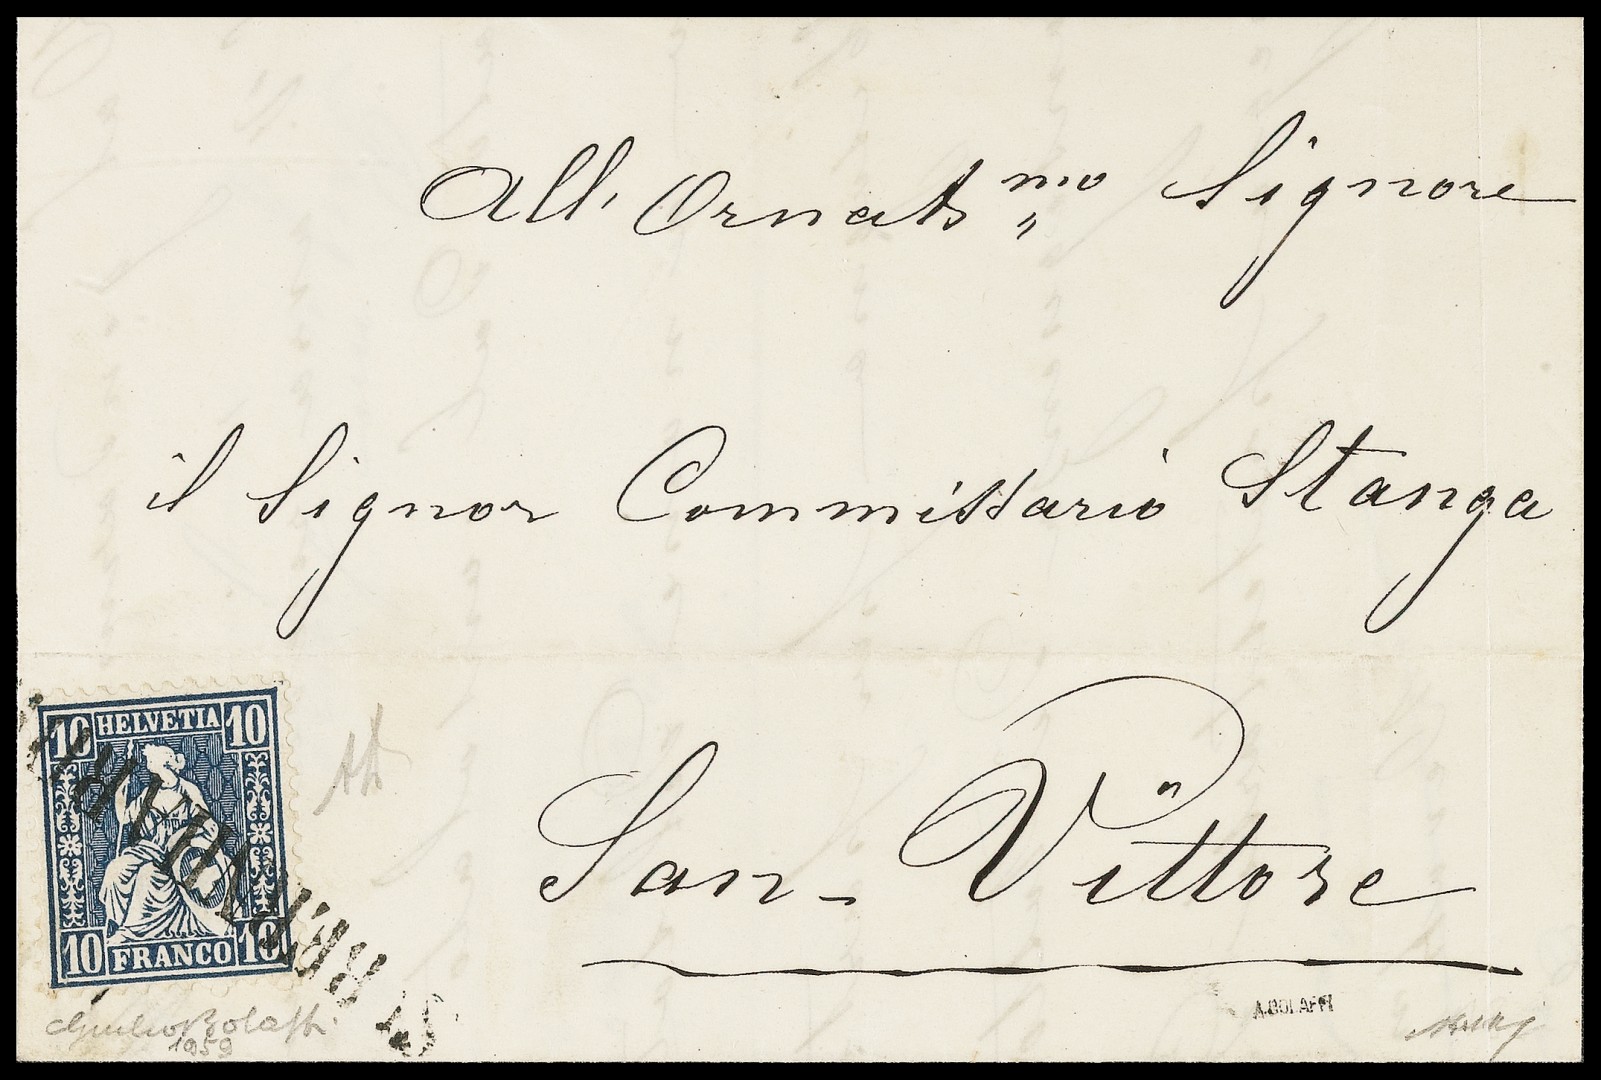 All' Ornatsmo Signore
il Signor Commissario Stanga
San-Vittore
10 HELVETIA 10
10 FRANCO 10
Giulio Bolaffi
1959
A.BOLAFFI